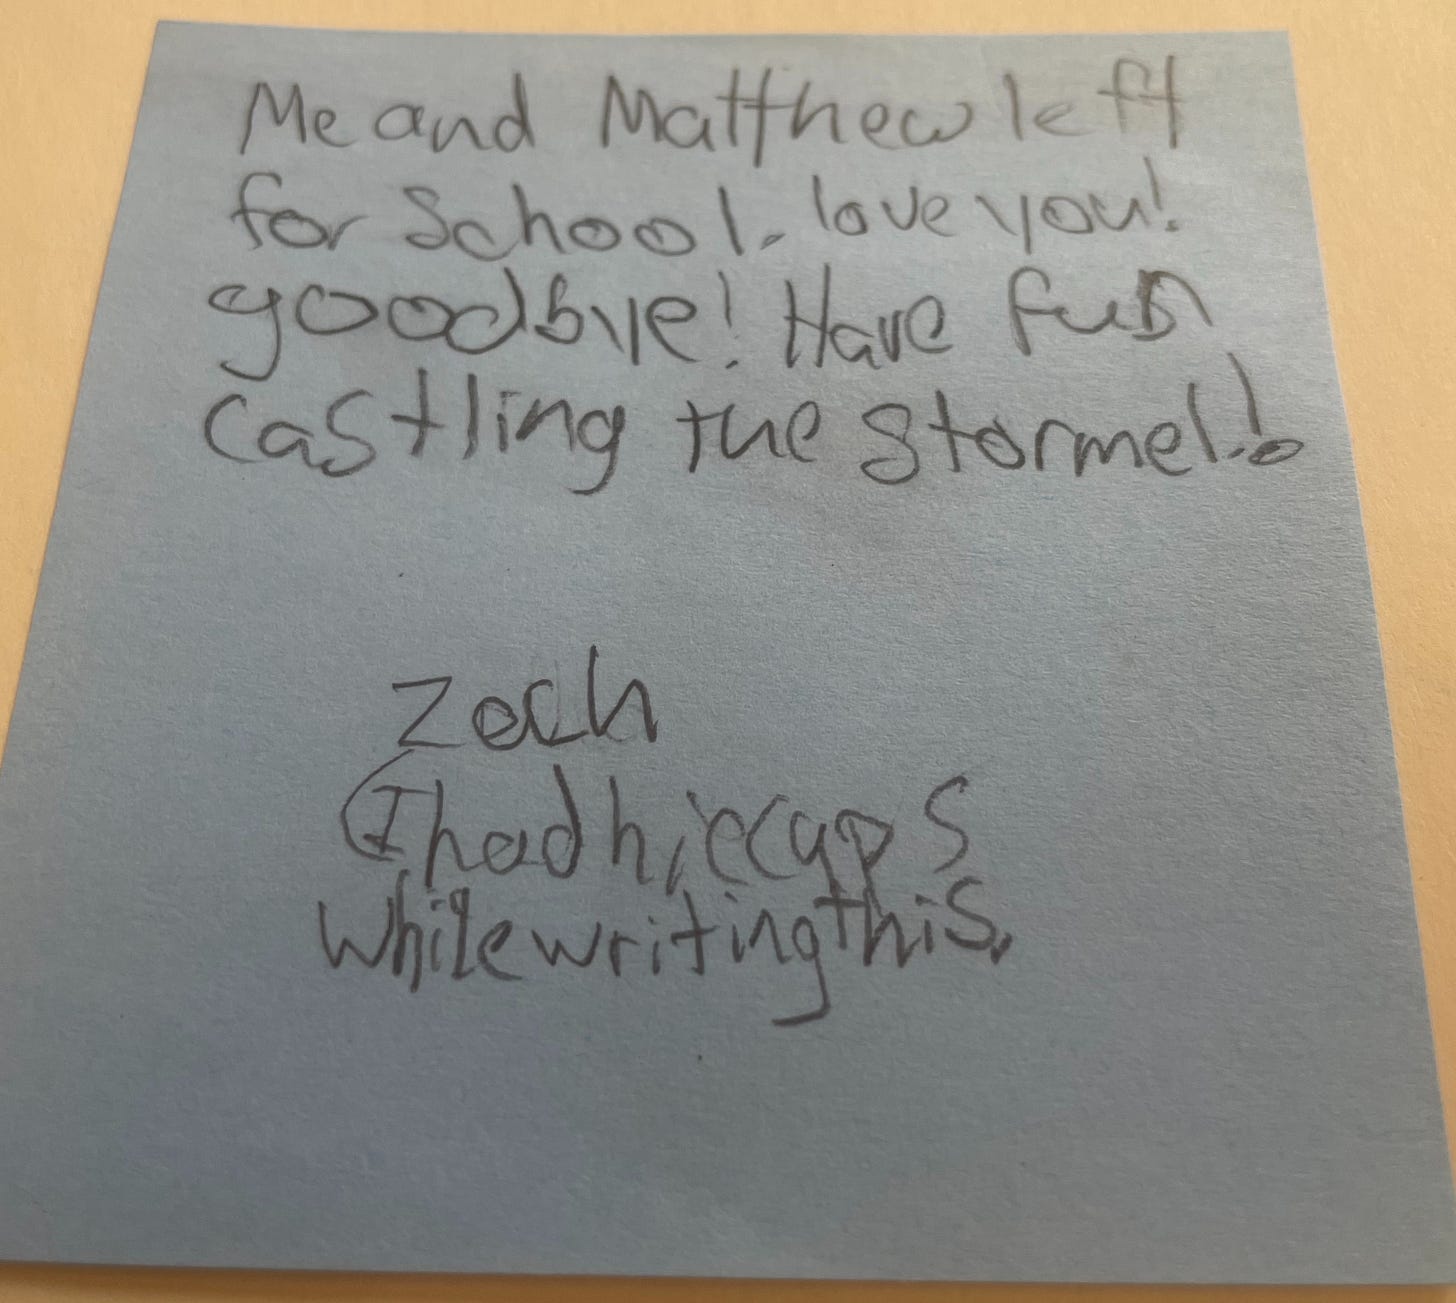 Me and Matthew left
for School. love you!
goodbye! Have fun
Castling the stormel.!
Zach
(I had hiccups
while writing this.